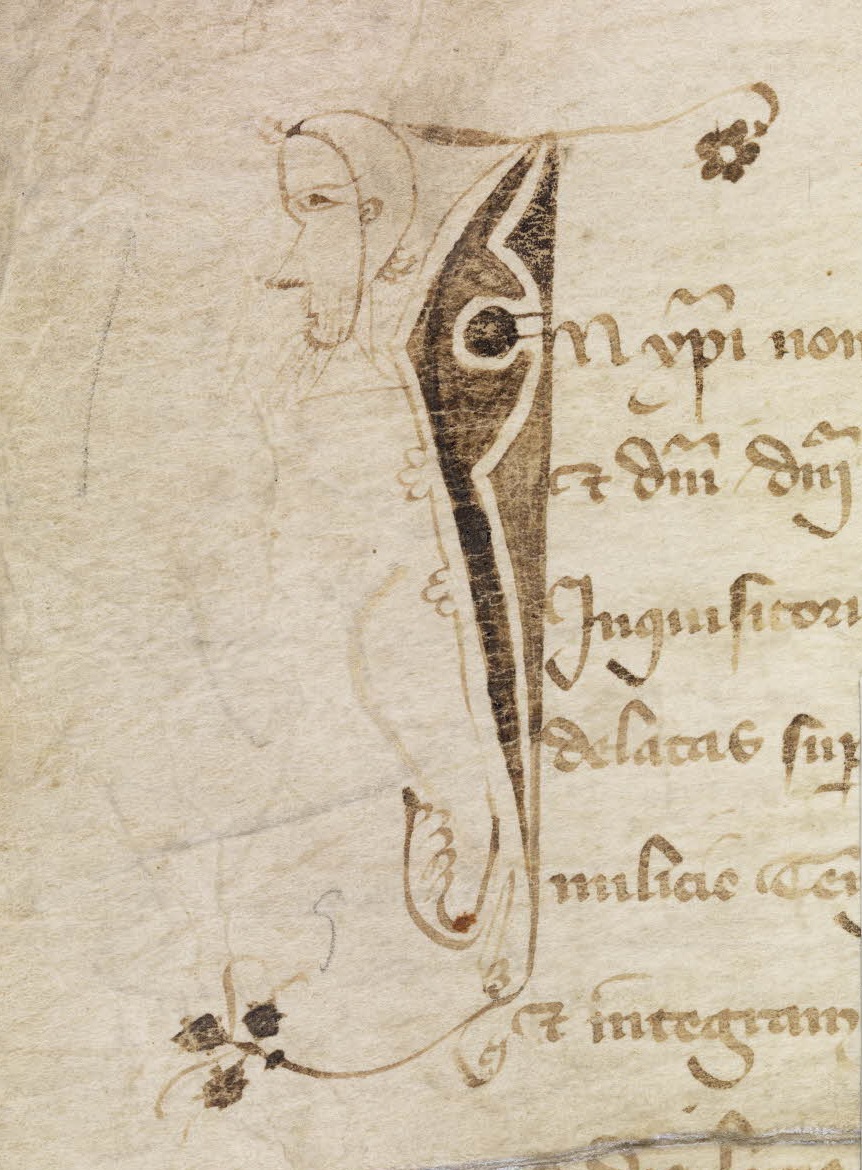 In xp̄i nom
et dn̄i dn̄i
Inquisitori
delatas sup
milicie Tem
et integram